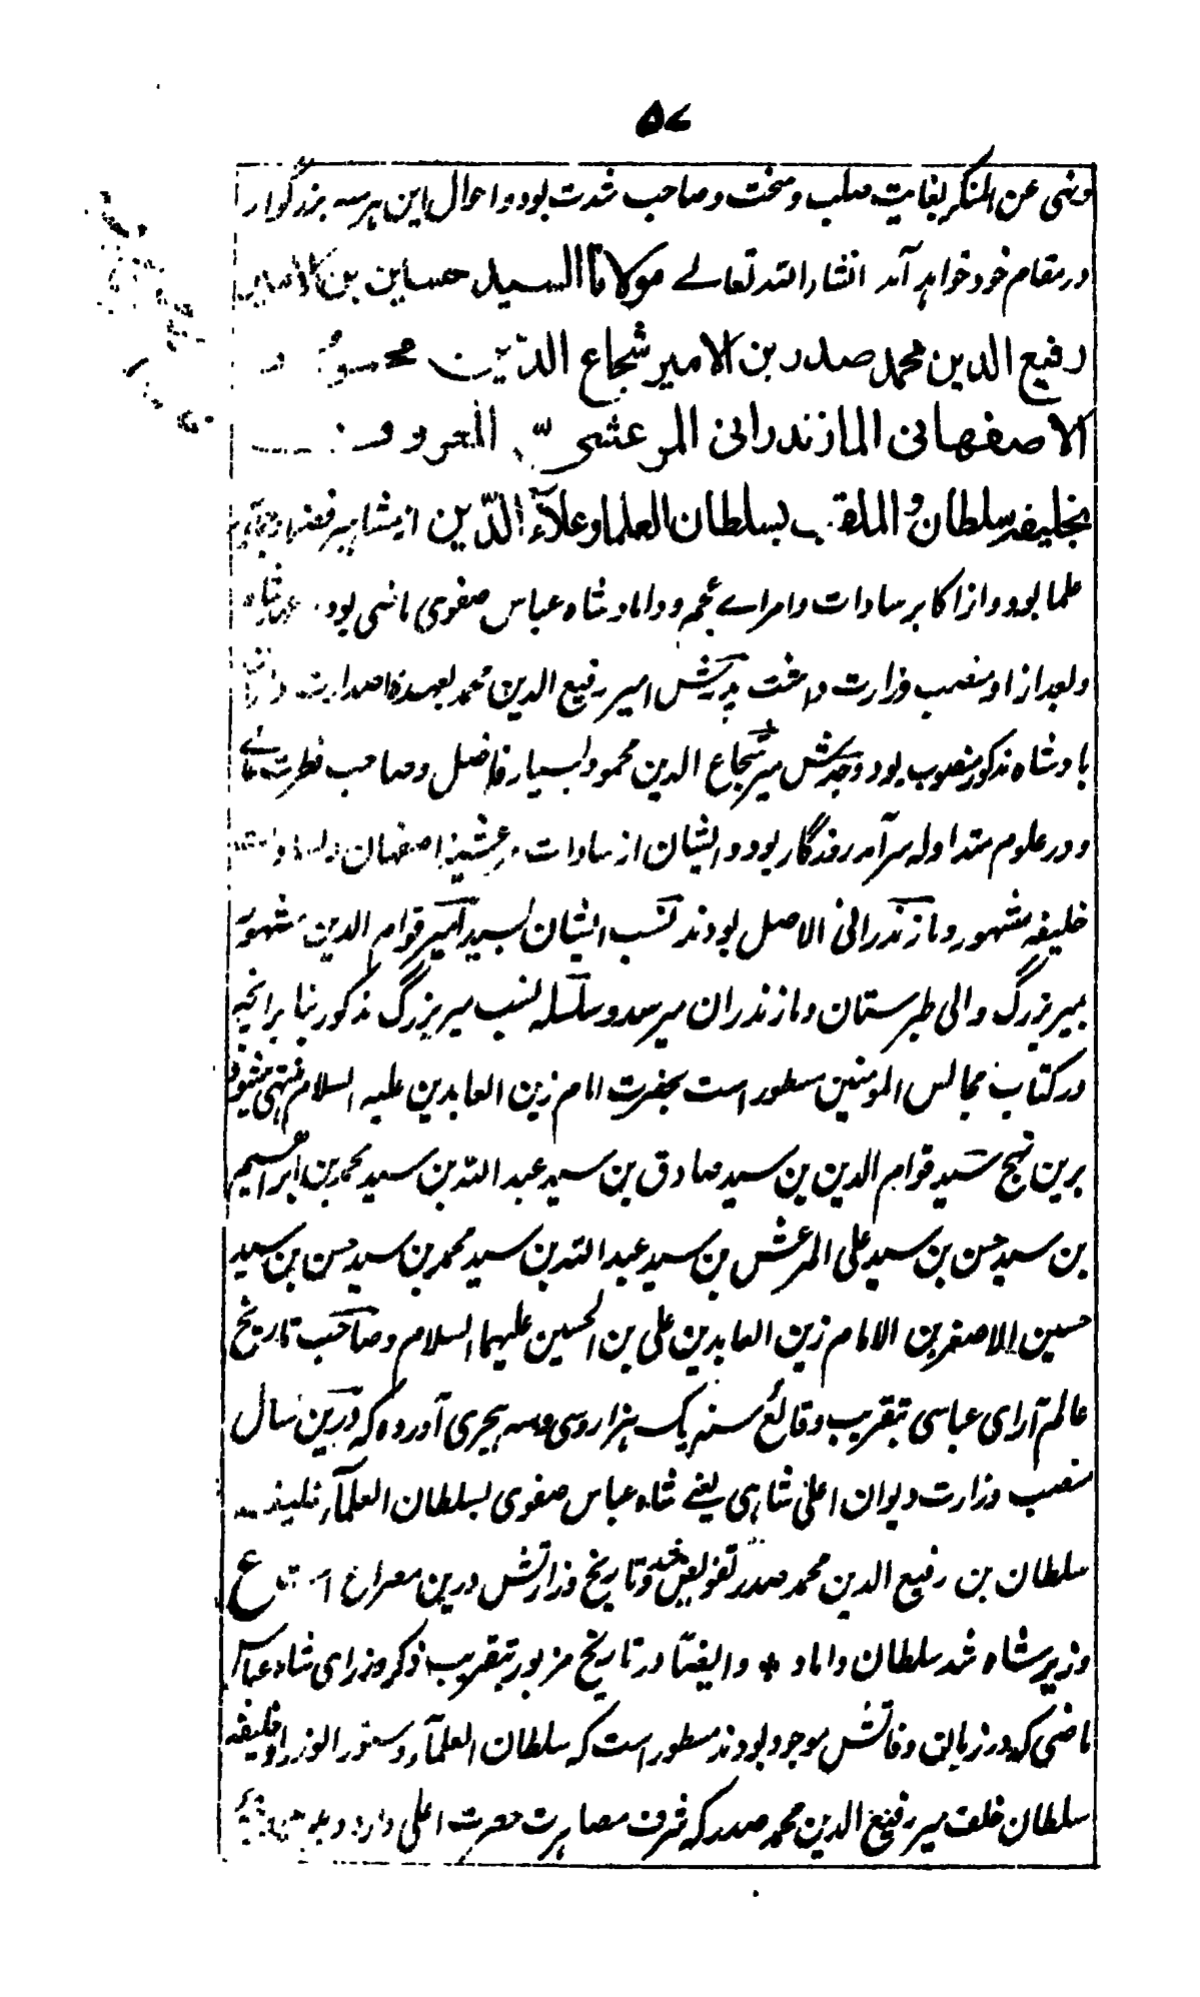 ۵۷
ونهی عن المنکر بغایت صلب و سخت و صاحب شدت بود و احوال این هر سه بزرگوار
در مقام خود خواهد آمد انشاء الله تعالے مولانا السید حساین بن
رفیع الدین محمد صدر بن الامیر شجاع الدین
الاصفهانی المازندرانی المرعشی المعروف
بخلیفه سلطان و الملقب بسلطان العلماء و علاء الدّین از مشاهیر فضلا
علما بود و از اکابر سادات و امراے عجم و داماد شاه عباس صفوی ماضی بود
و بعد از او منصب وزارت داشت پدرش امیر رفیع الدین محمد بعهدهٔ صدارت
بادشاه مذکور منصوب بود و جدش میر شجاع الدین محمود بسیار فاضل و صاحب فطرت عالے
و در علوم متداوله سرآمد روزگار بود و ایشان از سادات مرعشیه اصفهان
خلیفه مشهور و مازندرانی الاصل بودند نسب ایشان بسید امیر قوام الدین مشهور
بمیر بزرگ والی طبرستان و مازندران میرسد و سلسله نسب میر بزرگ مذکور بنا بر آنچه
در کتاب مجالس المومنین مسطور است بحضرت امام زین العابدین علیه السلام منتهی میشود
برین نهج سید قوام الدین بن سید صادق بن سید عبد الله بن سید محمد بن ابراهیم
بن سید حسن بن سید علی المرعش بن سید عبد الله بن سید محمد بن سید حسن بن سید
حسین الاصغر بن الامام زین العابدین علی بن الحسین علیهما السلام و صاحب تاریخ
عالم آرای عباسی بتقریب وقائع سنه یک هزار و سی و سه هجری آورده که درین سال
منصب وزارت دیوان اعلی شاهی یعنے شاه عباس صفوی بسلطان العلماء خلیفه
سلطان بن رفیع الدین محمد صدر تفویض شد و تاریخ وزارتش درین مصراع ع
وزیر شاه شد سلطان داماد * و ایضاً در تاریخ مزبور بتقریب ذکر وزرای شاه عباس
ماضی که در زمان وفاتش موجود بودند مسطور است که سلطان العلماء و دستور الوزراء خلیفه
سلطان خلف میر رفیع الدین محمد صدر که شرف مصاهرت حضرت اعلی دارد